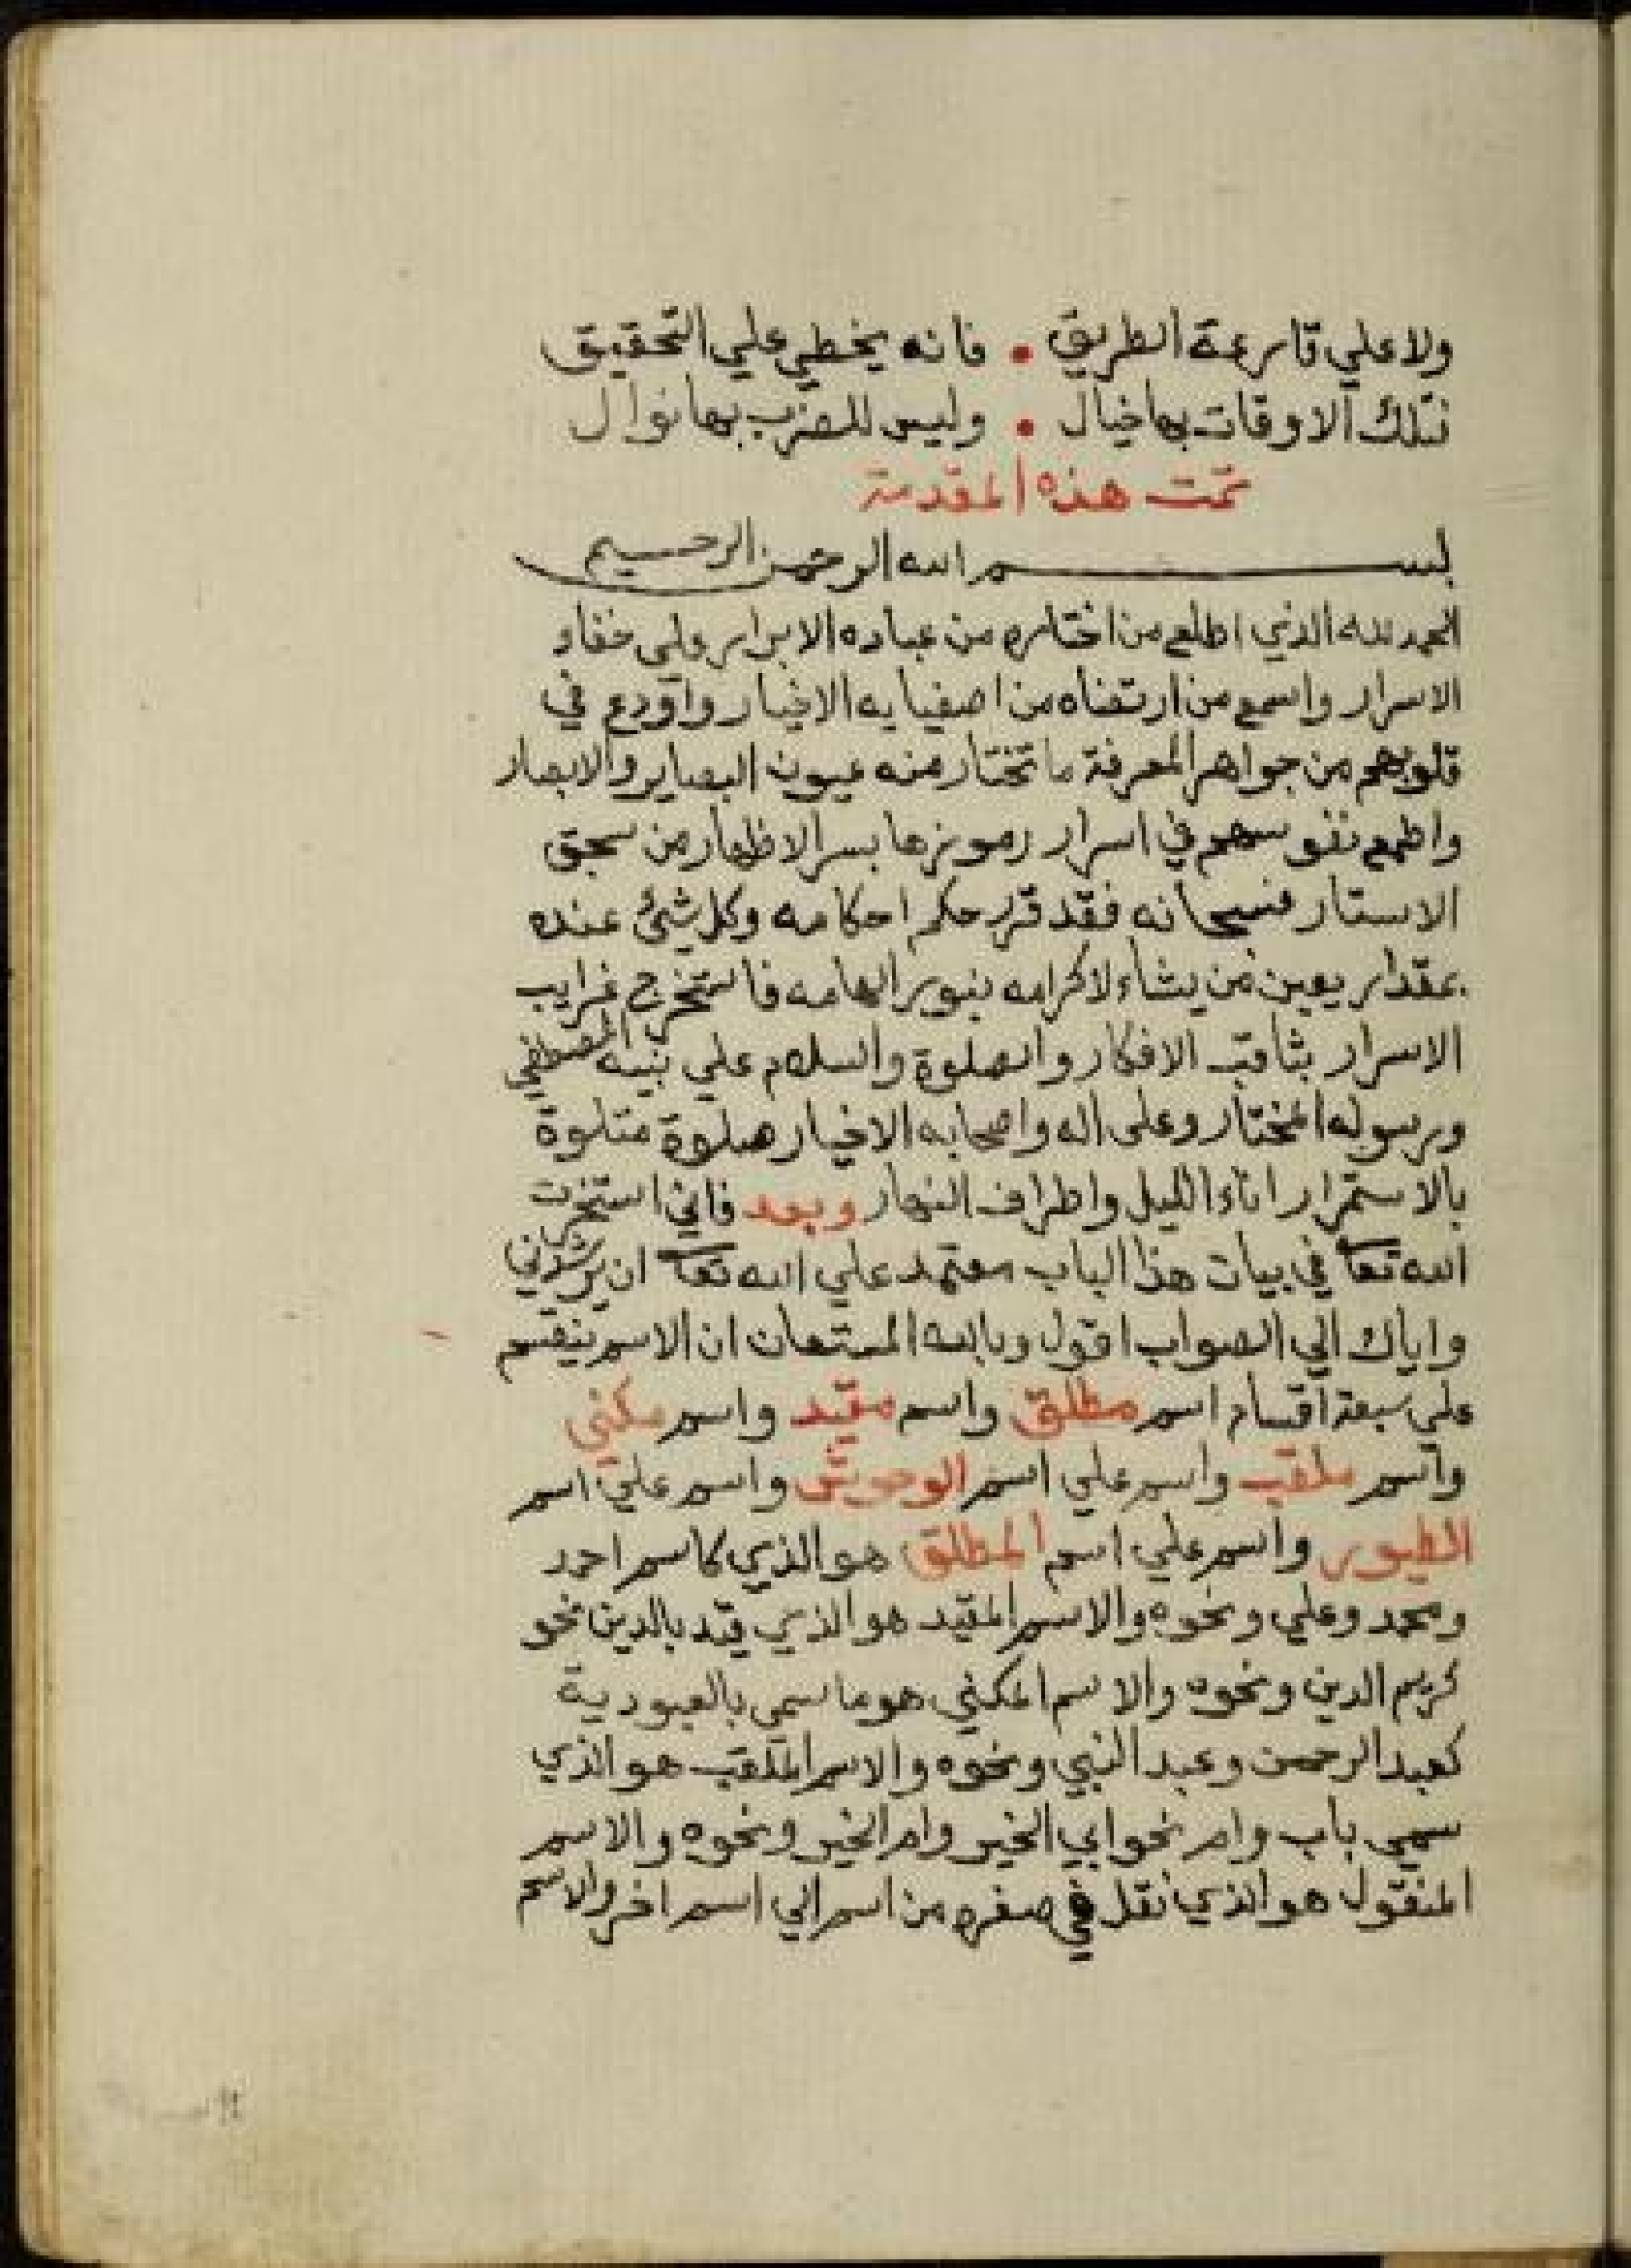 ولا علي قارعة الطريق • فانه يخطي علي التحقيق
فتلك الاوقات بها خيال • وليس للمضرب بها نوال
تمت هذه المقدمة
بسم الله الرحمن الرحيم
الحمد لله الذي اطلع من اختاره من عباده الابرار ولي خفاء
الاسرار واسمع من ارتضاه من اصفيايه الاخيار واودع في
قلوبهم من جواهر المعرفة ما تختار منه عيون البصاير والابصار
واطمع نفوسهم في اسرار رموزها بسر الاظهار من سجق
الاستار فسبحانه فقد قرر حكم احكامه وكل شئ عنده
بمقدار يعين من يشاء لاكرامه بنور الهامه فاستخرج غرايب
الاسرار بثاقب الافكار والصلوة والسلام علي نبيه المصطفي
ورسوله المختار وعلى اله واصحابه الاخيار صلوة متلوة
بالاستمرار اناء الليل واطراف النهار وبعد فاني استخرت
الله تعا في بيان هذا الباب معتمد علي الله تعا ان يرشدني
واياك الي الصواب اقول وبالله المستعان ان الاسم ينقسم
علي سبعة اقسام اسم مطلق واسم مقيد واسم مكني
واسم ملقب واسم علي اسم الوحوش واسم علي اسم
الطيور واسم علي اسم المطلق هو الذي كاسم احمد
ومحمد وعلي ونحوه والاسم المقيد هو الذي قيد بالدين نحو
كريم الدين ونحوه والاسم المكني هو ما سمي بالعبودية
كعبد الرحمن وعبد النبي ونحوه والاسم الملقب هو الذي
سمي باب وام نحو ابي الخير وام الخير ونحوه والاسم
المنقول هو الذي نقل في صغره من اسم الي اسم اخر والاسم